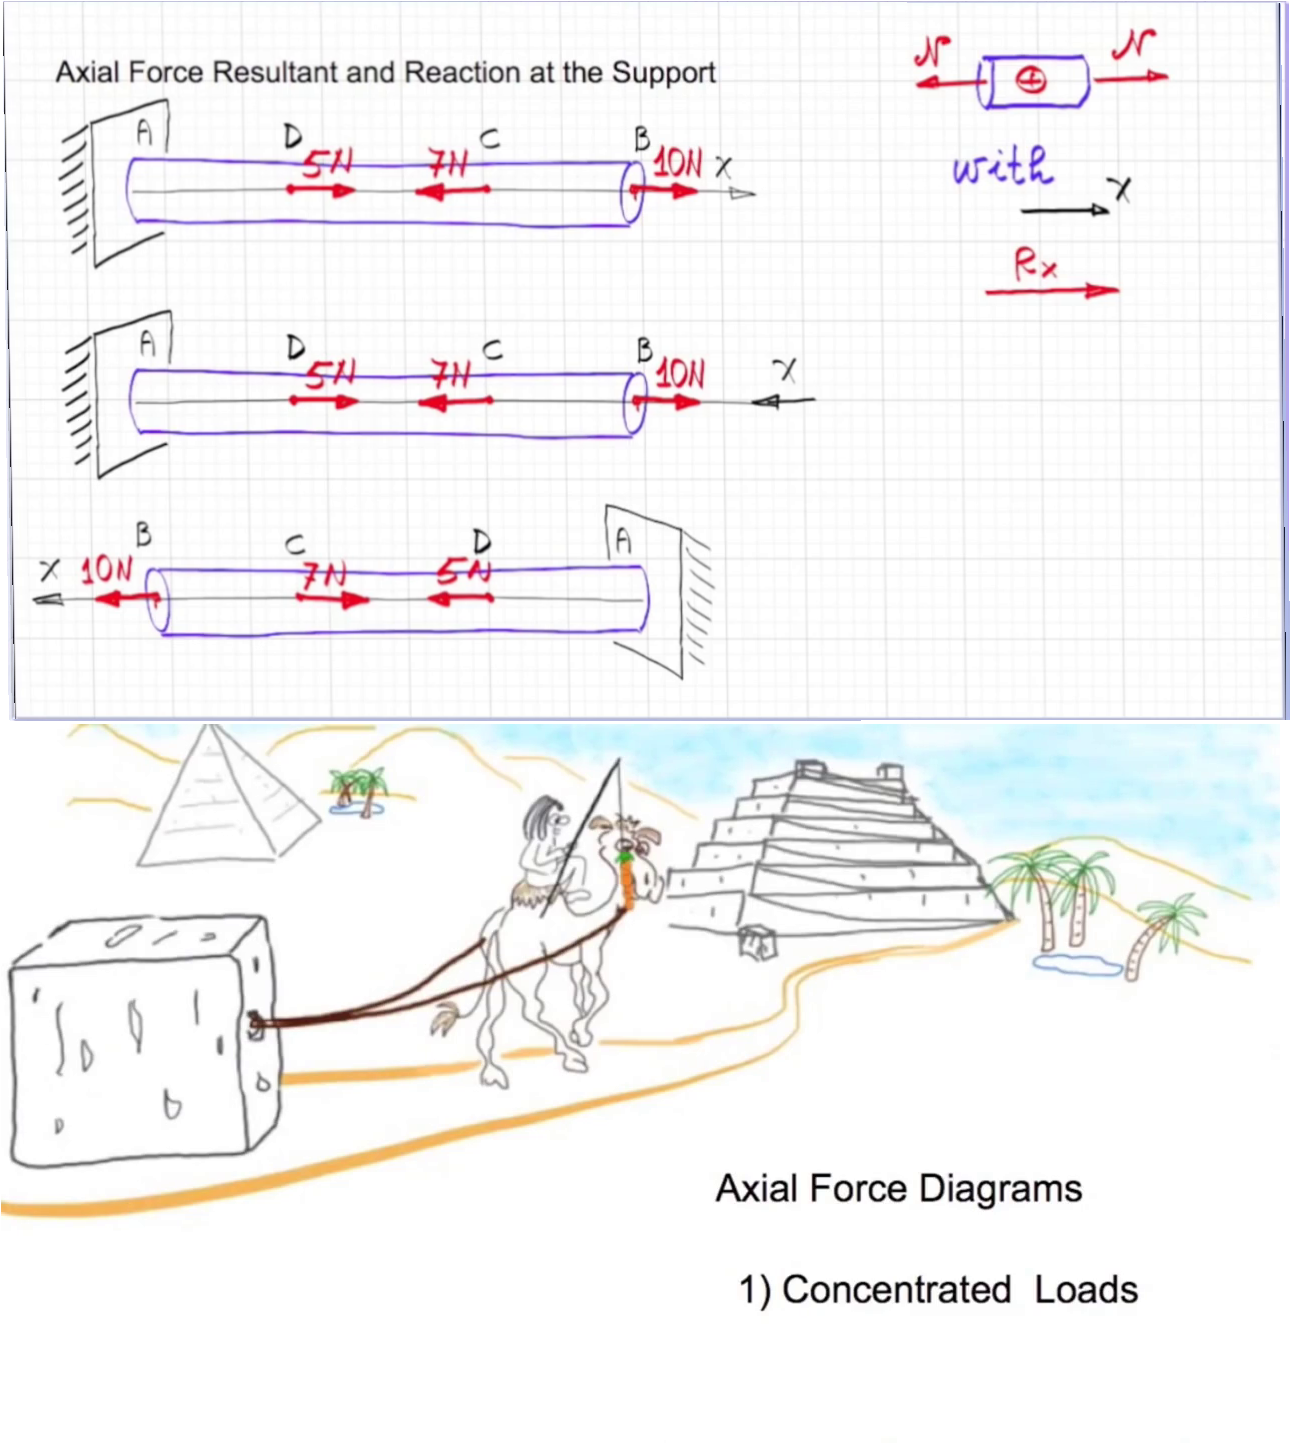 Axial Force Resultant and Reaction at the Support
N N
+
with
x
Rx
A D C B
5N 7N 10N x
A D C B
5N 7N 10N x
B C D A
x 10N 7N 5N
Axial Force Diagrams
1) Concentrated Loads